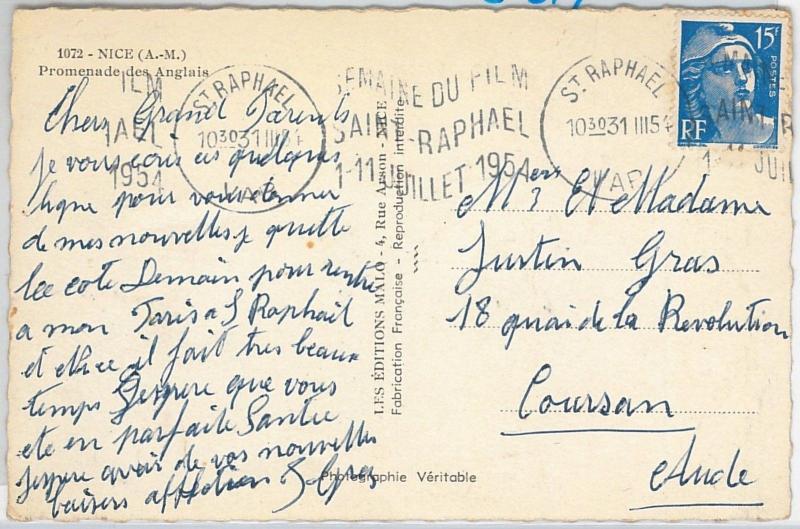 1072 - NICE (A.-M.)
Promenade des Anglais
Chers Grand Parents
je vous ecris ces quelques
ligne pour vous donner
de mes nouvelles je quitte
la cote Demain pour rentre
a mon Paris a S Raphail
et Nice il fait tres beaux
temps J'espere que vous
ete en parfaite Santee
Jespere avoir de vos nouvelles
baisers affection Gras
LES ÉDITIONS MALO - 4, Rue Arson - NICE
Fabrication Française - Reproduction Interdite
Photographie Véritable
ILM
HAEL
1954
ST RAPHAEL
10 30 31 III 54
VAR
SEMAINE DU FILM
SAINT-RAPHAEL
1-11 JUILLET 1954
ST RAPHAEL
10 30 31 III 54
VAR
15F
POSTES
RF
Mr Et Madame
Justin Gras
18 quai de la Revolution
Coursan
Aude